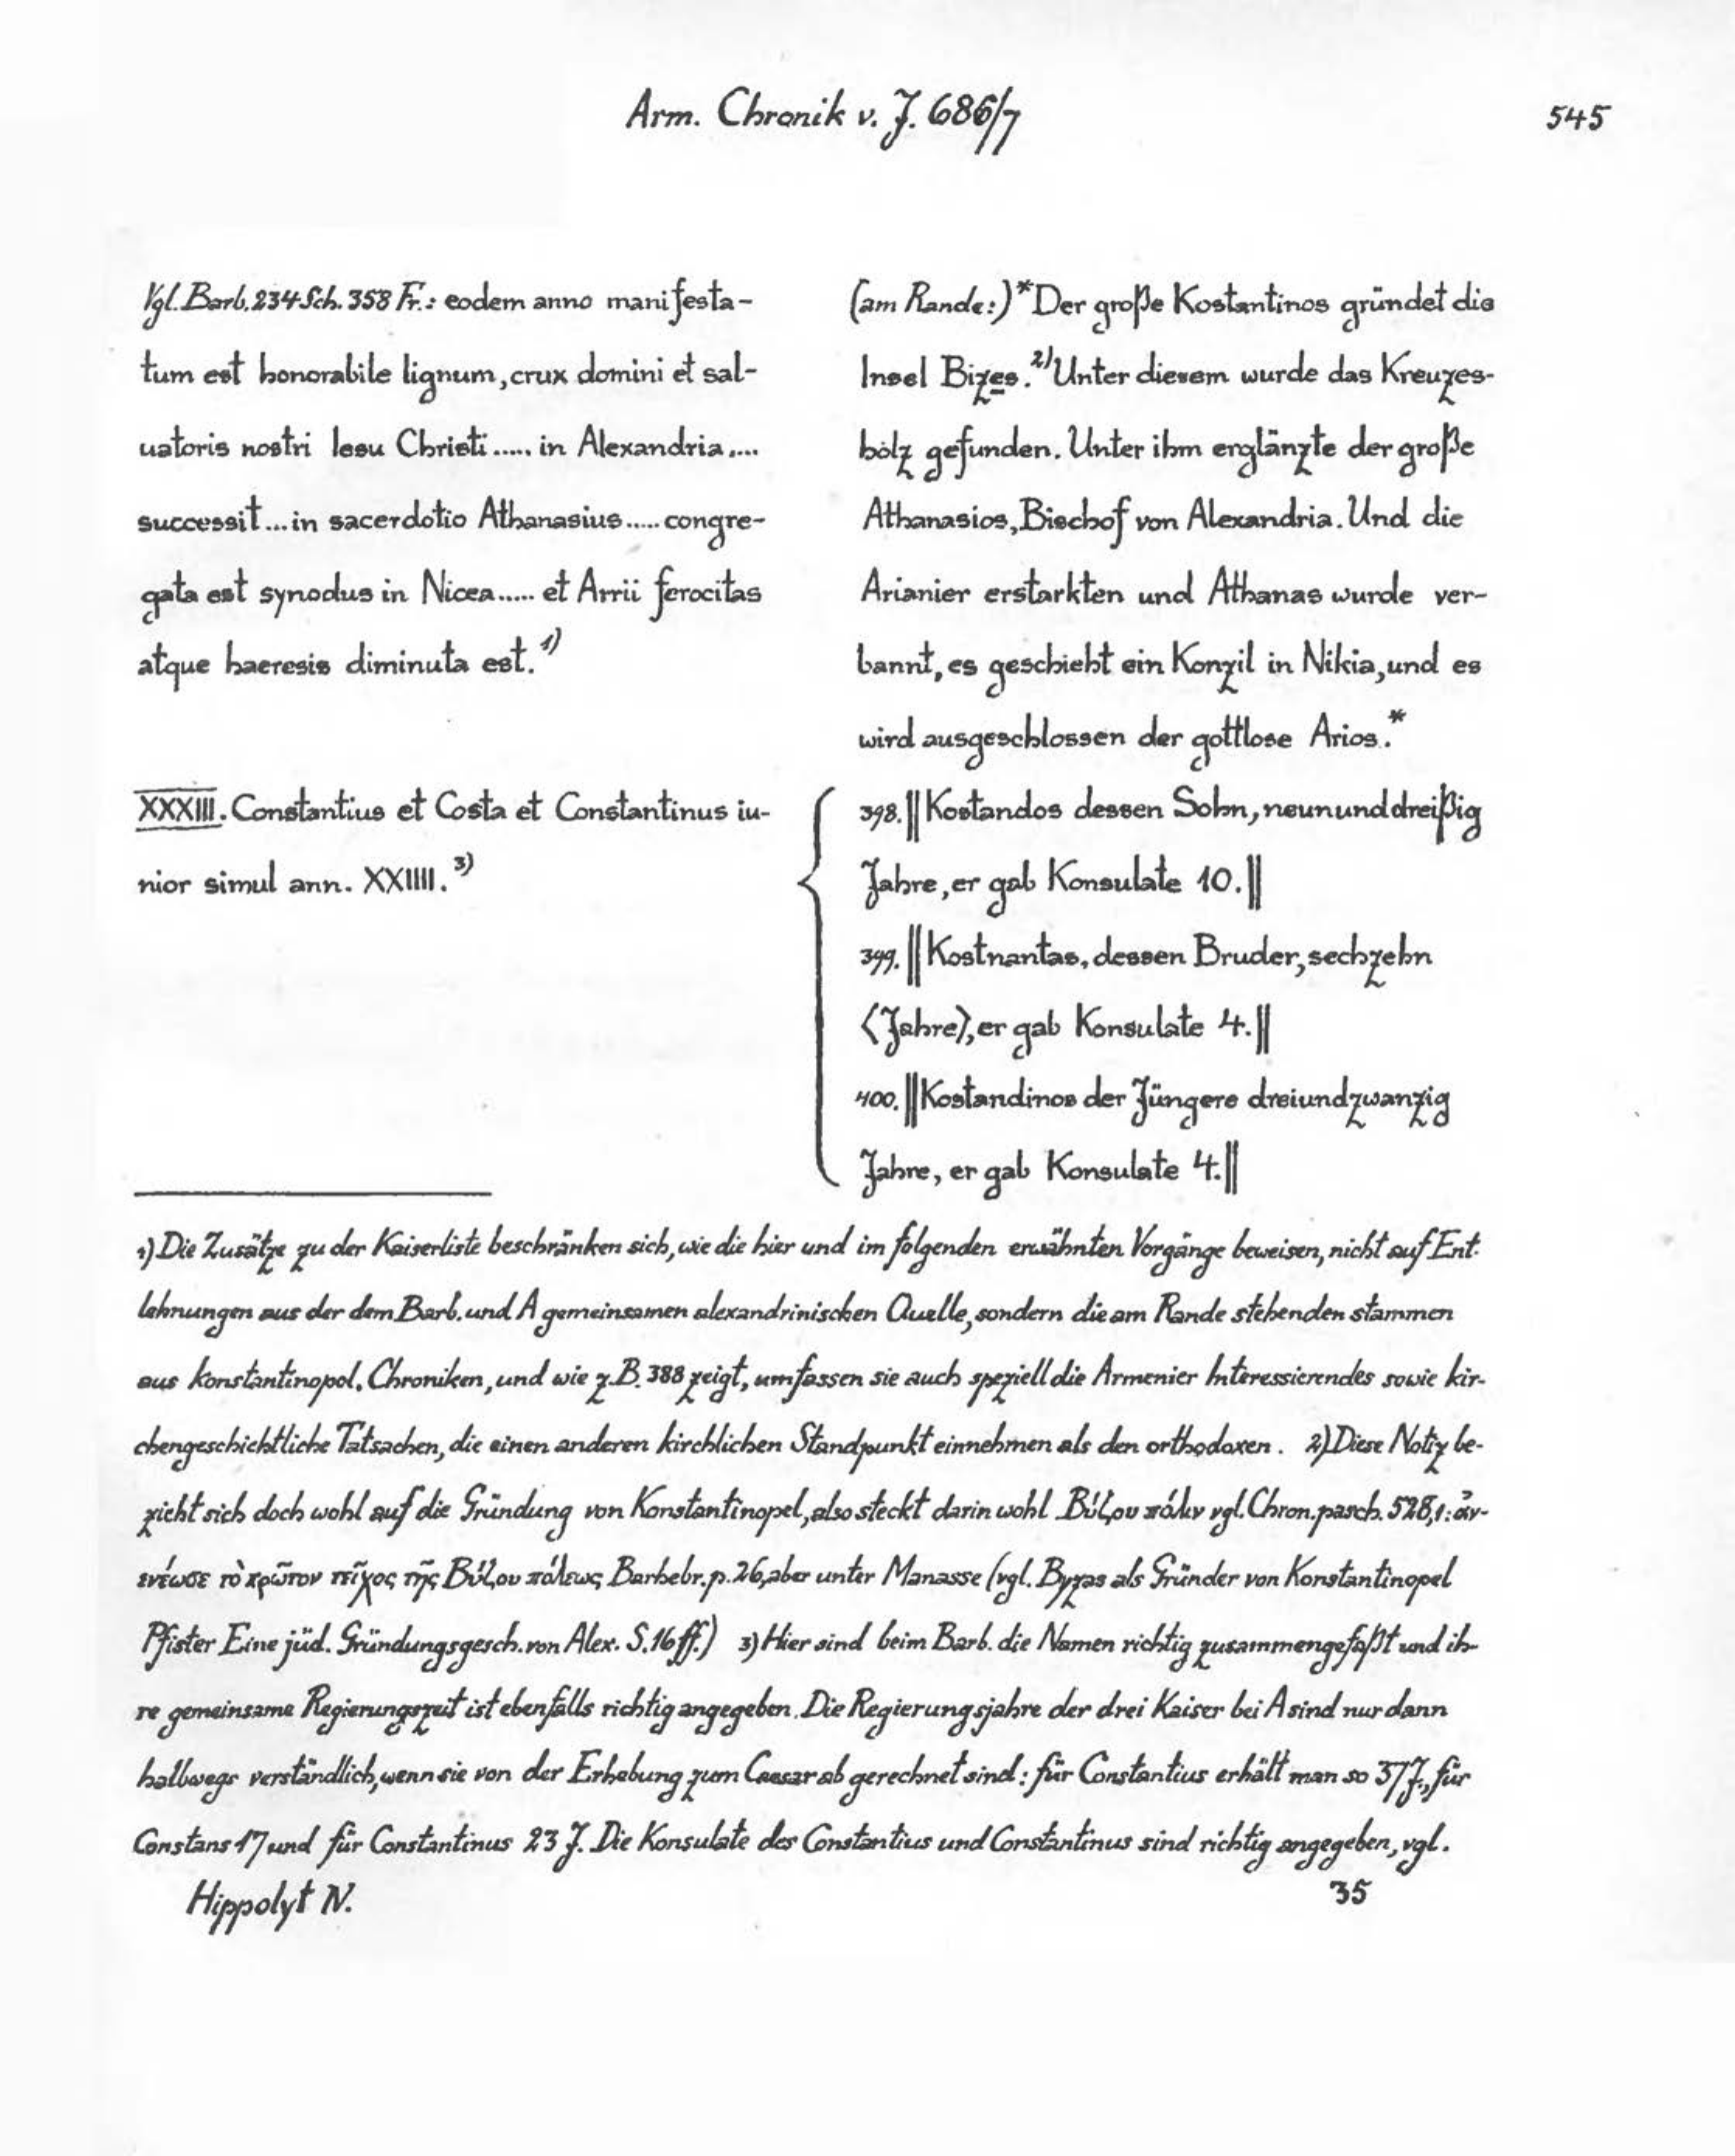 Arm. Chronik v. J. 686/7
545
Vgl. Barb. 234 Sch. 358 Fr.: eodem anno manifesta-
tum est honorabile lignum, crux domini et sal-
uatoris nostri Iesu Christi ..... in Alexandria ....
successit ... in sacerdotio Athanasius ..... congre-
gata est synodus in Nicea ..... et Arrii ferocitas
atque haeresis diminuta est. 1)
XXXIII. Constantius et Costa et Constantinus iu-
nior simul ann. XXIIII. 3)
(am Rande:) *Der große Kostantinos gründet die
Insel Bizes. 2) Unter diesem wurde das Kreuzes-
holz gefunden. Unter ihm erglänzte der große
Athanasios, Bischof von Alexandria. Und die
Arianier erstarkten und Athanas wurde ver-
bannt, es geschieht ein Konzil in Nikia, und es
wird ausgeschlossen der gottlose Arios.*
398. || Kostandos dessen Sohn, neununddreißig
Jahre, er gab Konsulate 10. ||
399. || Kostnantas, dessen Bruder, sechzehn
⟨Jahre⟩, er gab Konsulate 4. ||
400. || Kostandinos der Jüngere dreiundzwanzig
Jahre, er gab Konsulate 4. ||
1) Die Zusätze zu der Kaiserliste beschränken sich, wie die hier und im folgenden erwähnten Vorgänge beweisen, nicht auf Ent-
lehnungen aus der dem Barb. und A gemeinsamen alexandrinischen Quelle, sondern die am Rande stehenden stammen
aus konstantinopol. Chroniken, und wie z.B. 388 zeigt, umfassen sie auch speziell die Armenier Interessierendes sowie kir-
chengeschichtliche Tatsachen, die einen anderen kirchlichen Standpunkt einnehmen als den orthodoxen. 2) Diese Notiz be-
zieht sich doch wohl auf die Gründung von Konstantinopel, also steckt darin wohl Βύζου πόλιν vgl. Chron. pasch. 528,1: ἀν-
ενέωσε τὸ πρῶτον τεῖχος τῆς Βύζου πόλεως Barhebr. p. 26, aber unter Manasse (vgl. Byzas als Gründer von Konstantinopel
Pfister Eine jüd. Gründungsgesch. von Alex. S. 16 ff.) 3) Hier sind beim Barb. die Namen richtig zusammengefaßt und ih-
re gemeinsame Regierungszeit ist ebenfalls richtig angegeben. Die Regierungsjahre der drei Kaiser bei A sind nur dann
halbwegs verständlich, wenn sie von der Erhebung zum Caesar ab gerechnet sind: für Constantius erhält man so 37 J., für
Constans 17 und für Constantinus 23 J. Die Konsulate des Constantius und Constantinus sind richtig angegeben, vgl.
Hippolyt IV.
35